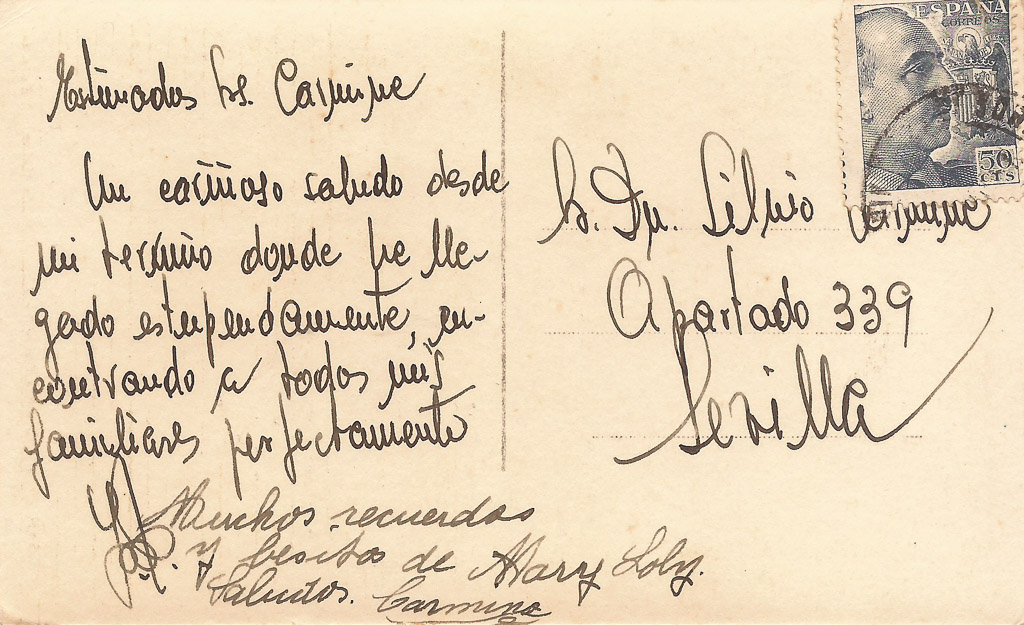 Estimados Ss. Carmine
Un cariñoso saludo desde
mi termino donde he lle-
gado estupendamente, en-
contrando a todos mis
familiares perfectamente
Muchos recuerdos
y besitos de Mary Loly.
Saluitos. Carmina
ESPAÑA
CORREOS
50
CTS
S. Dn. Silvio Carmine
Apartado 339
Sevilla